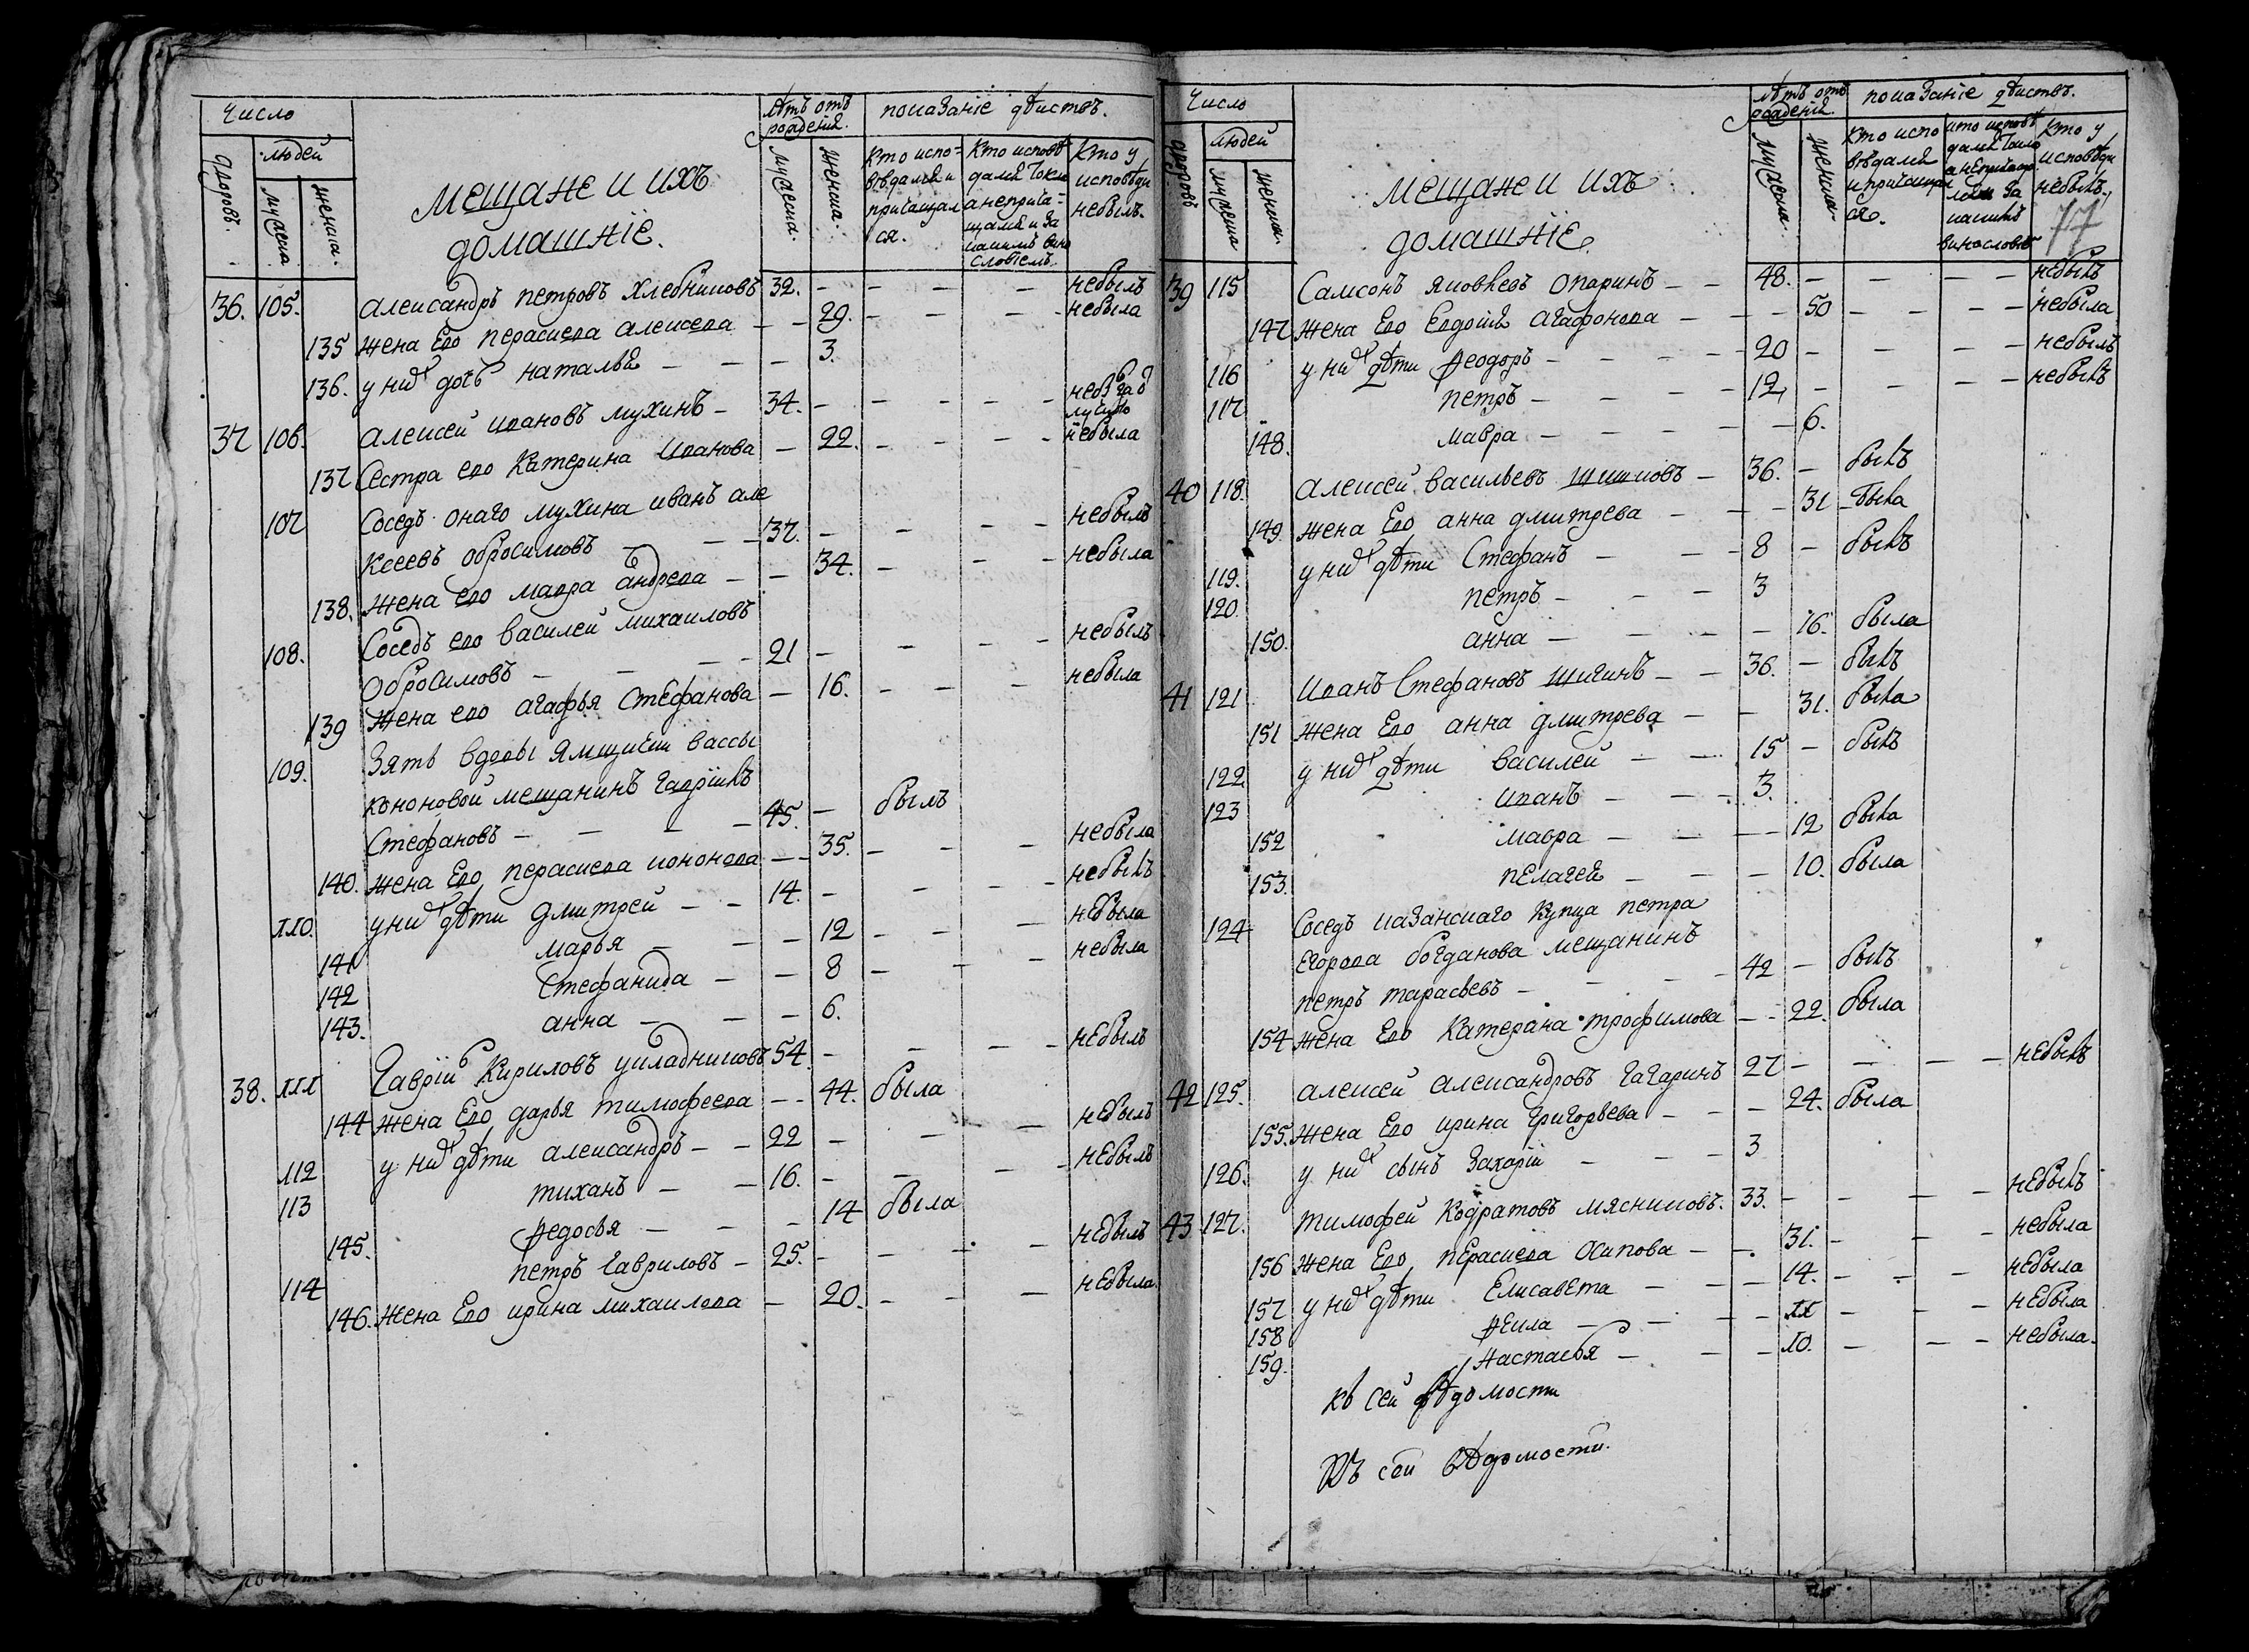 Число
лѣтъ отъ рожденія.
показаніе дѣиствъ.
дворовъ.
людей
мужеска
женска.
мещане и ихъ
домашніе.
мужеска.
женска.
Кто испо=
вѣдался и
причащал
ся.
Кто исповѣ
дался токмо
а неприча=
щался и за
какимъ вино
словіемъ.
Кто у
исповѣди
небылъ.
36. 105. александръ петровъ хлебниковъ 32. – – – – небылъ
135 жена Его параскева алексеева – – 29. – – – – небыла
136. у них дочь наталья – – – 3.
37 106. алексей ивановъ мухинъ – 34. – – – – –
небыла
137 Сестра его Катерина Иванова – 22. – – – –
107 Соседъ онаго мухина иванъ але
ксеевъ обросимовъ – – – 37. – – – – небылъ
138. жена его мавра андреева – – 34. – – – небыла
108. Соседъ его василей михаиловъ
Обросимовъ – – – – 21 – – – – небылъ
139 жена его агафья Стефанова – 16. – – – небыла
109. Зять вдовы ямщички вассы
кононовой мещанинъ гаврiилъ
Стефановъ – – – – 45. – былъ
140. жена Его параскева кононова – – 35. – – – небыла
110. у них дѣти дмитреи – – 14. – – – – небылъ
141 марья – – – 12 – – – небыла
142 Стефанида – – 8 – – – небыла
143. анна – – – 6.
38. 111 Гаврiи Кириловъ укладниковъ 54. – – – – небылъ
144 жена Его дарья тимофеева – – 44. была
112 у них дѣти александръ – – 22 – – – небылъ
113 тиханъ – – 16. – – – – небылъ
145. федосья – – – 14 была
114 петръ гавриловъ – 25. – – – – небылъ
146. жена Его ирина михаилова – 20. – – – небыла.
Число
лѣтъ отъ
рожденія.
показаніе дѣиствъ.
дворовъ
людей
мужеска
женска.
мещане и ихъ
домашніе.
мужеска.
женска.
Кто испо
вѣдался
и причащал
ся.
кто исповѣ
дался токмо
а непричащал
за
какимъ
винословіе
Кто у
исповѣди
небылъ.
77
39 115 Самсонъ яковлевъ опаринъ – – 48. – – – – небылъ
147 жена Его Евдокія агафонова – – – 50 – – – – небыла
116 у них дѣти Феодоръ – – – – 20 – – – – небылъ
117 петръ – – – – 12 – – – – небылъ
148. мавра – – – – – 6.
40 118. алексей васильевъ шишковъ – 36. – былъ
149. жена Его анна дмитрева – – – 31 – была
119. у них дѣти Стефанъ – – – 8 – былъ
120. петръ – – – 3
150. анна – – – – 16. была
41 121 Иванъ Стефановъ шигинъ – – 36. – былъ
151 жена Его анна дмитрева – – 31. была
122 у них дѣти василеи – – 15 – былъ
123 иванъ – – – 3.
152 мавра – – – – 12 была
153. пелагея – – – 10. была
124 Соседъ казанскаго купца петра
Егорова богданова мещанинъ
петръ тарасьевъ – – – – 42 – былъ
154 жена Его Катерана трофимова – – 22. была
42 125. алексей александровъ гагаринъ 27 – – – – небылъ
155. жена Его ирина григорьева – – – 24. была
126. у них сынъ захарiи – – – 3
43 127. тимофеи Кодратовъ мясниковъ. 33. – – – – небылъ
156 жена Его параскева Осипова – – 31. – – – небыла
157 у них дѣти Елисавета – – – 14. – – – небыла
158 фекла – – – – 11 – – – небыла
159. настасья – – – 10. – – – небыла.
Къ сей вѣдомости
Къ сеи вѣдомости.